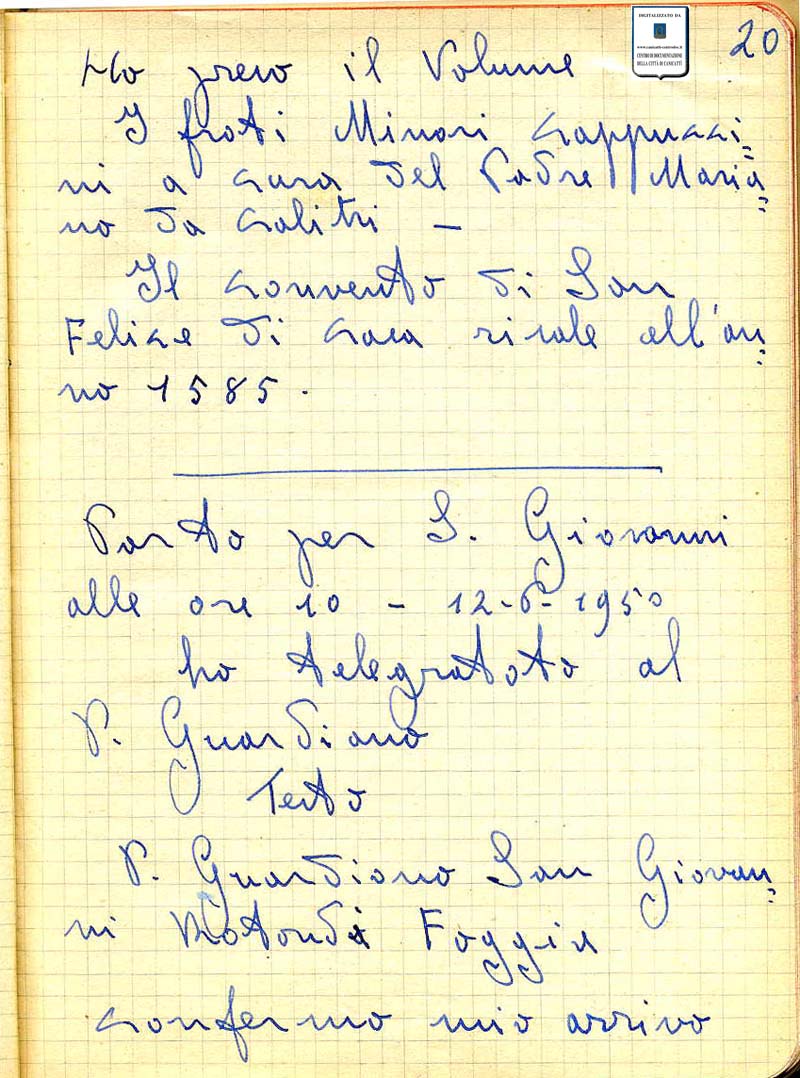 DIGITALIZZATO DA
www.canicatti-centrodoc.it
CENTRO DI DOCUMENTAZIONE
DELLA CITTÀ DI CANICATTÌ
20
Ho preso il Volume
I frati Minori Cappucci=
ni a cura del Padre Maria=
no da Calitri –
Il Convento di San
Felice di Cava risale all'an=
no 1585.
Parto per S. Giovanni
alle ore 10 – 12-6-1950
ho telegrafato al
P. Guardiano
Testo
P. Guardiano San Giovan=
ni Rotondo Foggia
Confermo mio arrivo